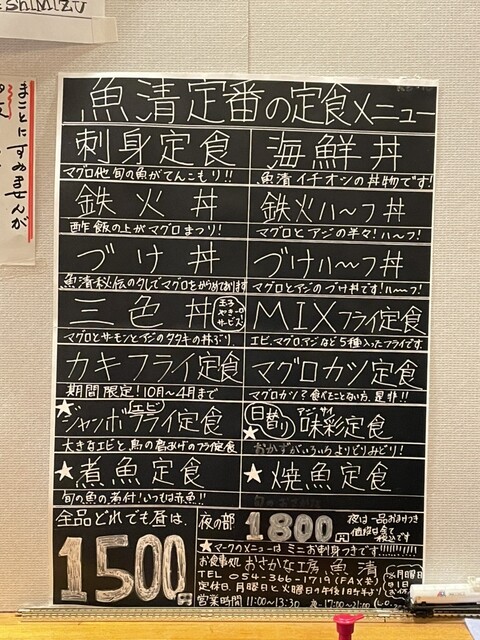 SHIMIZU
まことに
すみませんが
魚清定番の定食メニュー
刺身定食
マグロ他旬の魚がてんこもり!!
海鮮丼
魚清イチオシの丼物です!
鉄火丼
酢飯の上がマグロまつり!
鉄火ハーフ丼
マグロとアジの半々!ハーフ!
づけ丼
魚清秘伝のタレでマグロをからめております
づけハーフ丼
マグロとアジのづけ丼です!ハーフ!
三色丼
玉子やき サービス
マグロとサーモンとアジのタタキの丼ぶり
MIXフライ定食
エビ、マグロ、アジなど5種入ったフライです
カキフライ定食
期間限定!10月〜4月まで
マグロカツ定食
マグロカツ?食べたことない方、是非!!
★ジャンボエビフライ定食
大きなエビと鳥の唐あげのフライ定食
日替り
アジサイ
味彩定食
おかずがいろいろよりどりみどり!
★煮魚定食
旬の魚の煮付!いつも赤魚!!
★焼魚定食
全品どれでも昼は、
1500円
夜の部
1800円
夜は一品おまけつき
価格は全て
税込です
★マークのメニューはミニお刺身つきです!!!!!!!!!
お食事処 おさかな工房 魚清
TEL 054-366-1719(FAX兼)
定休日 月曜日と火曜日の午後1時半より
営業時間 11:00〜13:30 夜-17:00〜21:00 (L.O.